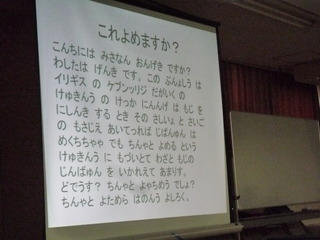 これよめますか？
こんちには みさなん おんげき ですか？
わしたは げんき です。 この ぶんょしう は
イリギス の ケブンッリジ だがいく の
けゅきんう の けっか にんんげ は もじ を
にしんき する とき その さしいょ と さいご
の もさじえ あいてっれば じばんゅん は
めくちちゃゃ でも ちんゃと よめる という
けゅきんう に もづいとて わざと もじの
じんばゅん を いかれえて あまりす。
どでうす？ ちんゃと よゃちめう でしょ？
ちんゃと よためら はのんう よしろく。